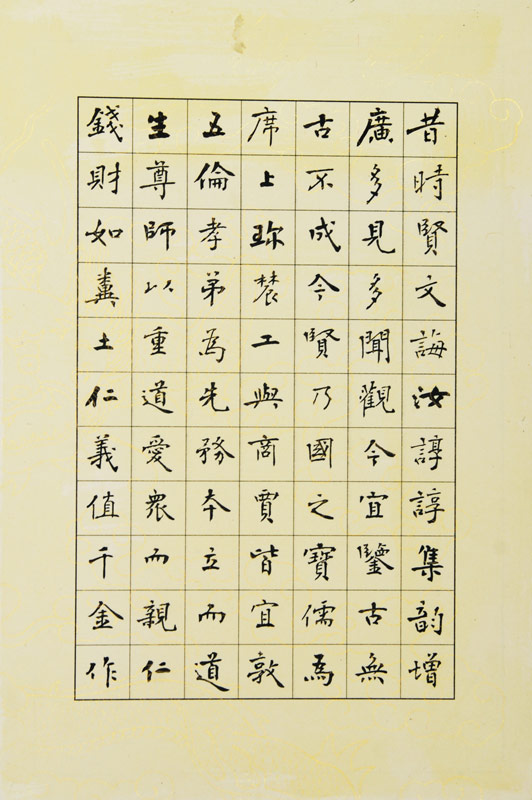 昔時賢文誨汝諄諄集韵增
廣多見多聞觀今宜鑒古無
古不成今賢乃國之寶儒為
席上珎農工與商賈皆宜敦
五倫孝弟為先務本立而道
生尊師以重道愛眾而親仁
錢財如糞土仁義值千金作